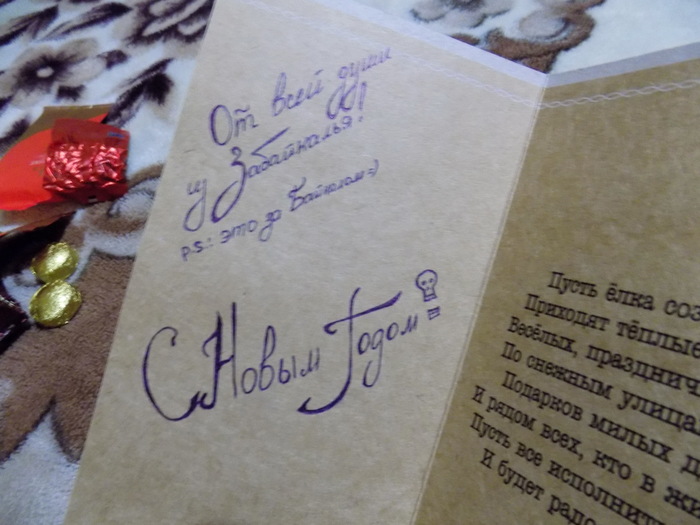 От всей души
из Забайкалья!
P.S.: это за Байкалом =)
С Новым Годом!
Пусть ёлка
Приходят тёплые
Весёлых,
По снежным
Подарков милых
И рядом всех, кто в
Пусть все
И будет